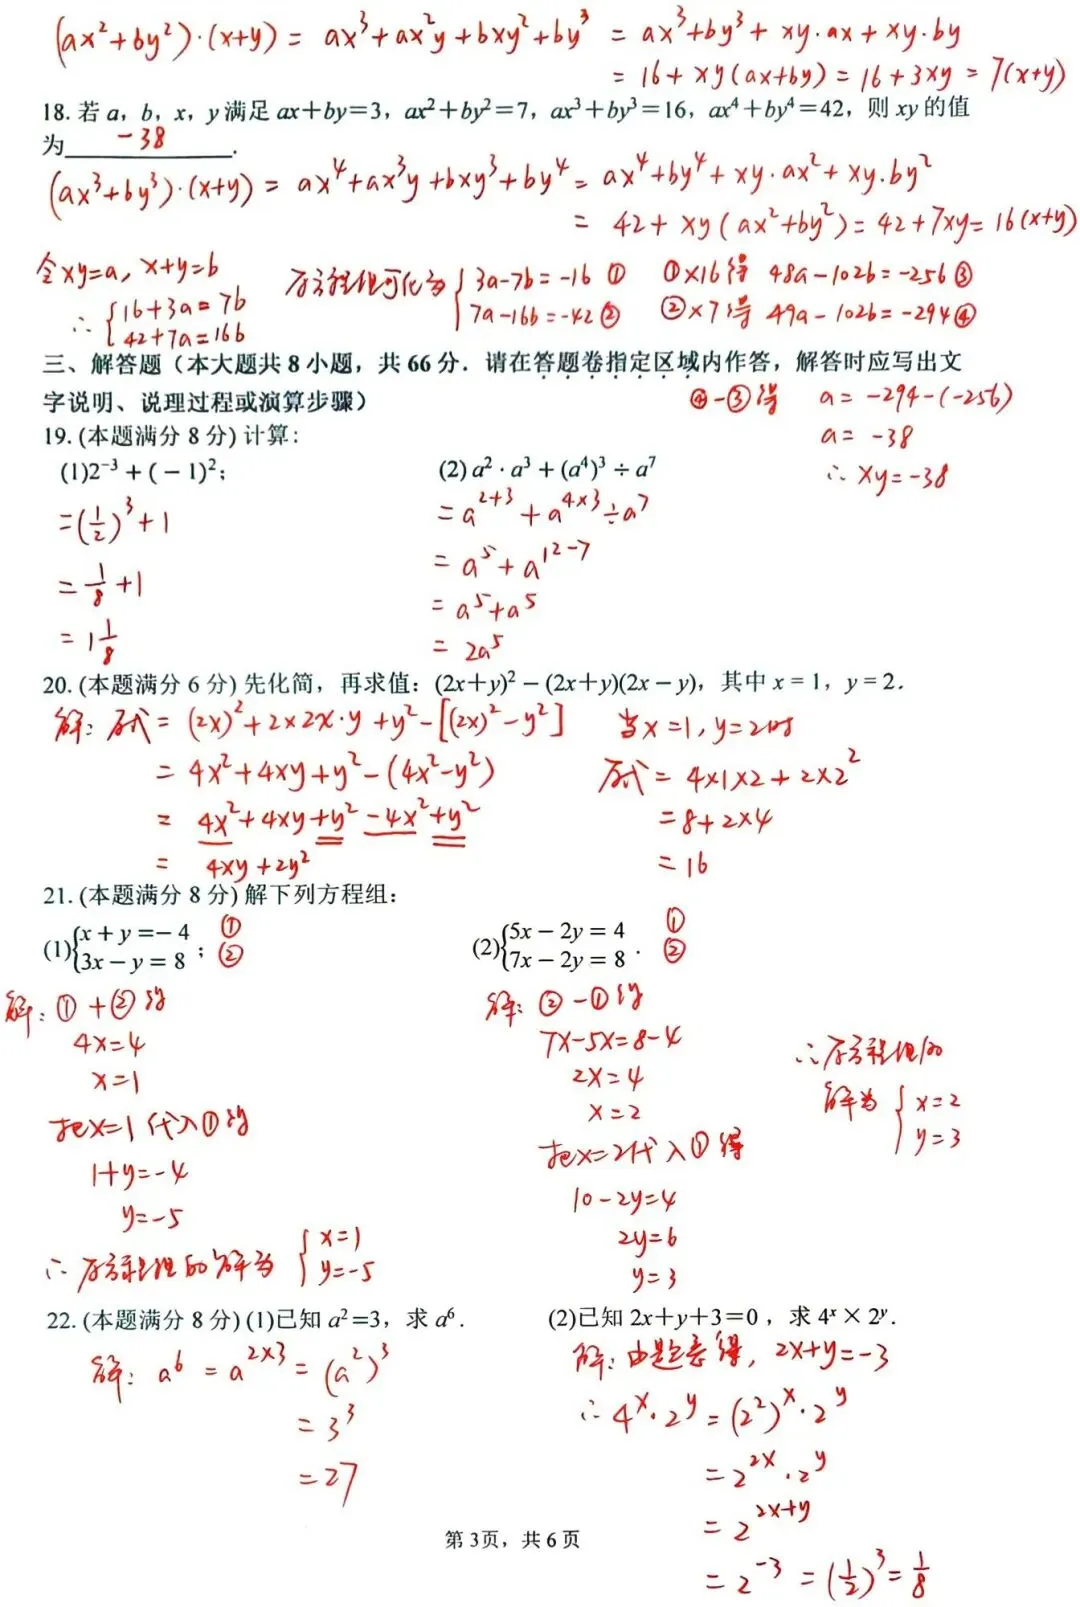 (ax²+by²)·(x+y) = ax³+ax²y+bxy²+by³ = ax³+by³+xy·ax+xy·by
= 16+xy(ax+by) = 16+3xy = 7(x+y)
18. 若 a, b, x, y 满足 ax+by=3, ax²+by²=7, ax³+by³=16, ax⁴+by⁴=42, 则 xy 的值
为 -38 .
(ax³+by³)·(x+y) = ax⁴+ax³y+bxy³+by⁴ = ax⁴+by⁴+xy·ax²+xy·by²
= 42+xy(ax²+by²)=42+7xy=16(x+y)
令xy=a, x+y=b
∴ {16+3a=7b
42+7a=16b
原方程组可化为 {3a-7b=-16 ①
7a-16b=-42 ②
①×16得 48a-102b=-256 ③
②×7得 49a-102b=-294 ④
④-③得 a=-294-(-256)
a=-38
∴ xy=-38
三、解答题（本大题共 8 小题，共 66 分．请在答题卷指定区域内作答，解答时应写出文
字说明、说理过程或演算步骤）
19. (本题满分 8 分) 计算：
(1)2⁻³+(-1)²;
=(1/2)³+1
=1/8+1
=1 1/8
(2) a²·a³+(a⁴)³÷a⁷
=a²⁺³+a⁴ˣ³÷a⁷
=a⁵+a¹²⁻⁷
=a⁵+a⁵
=2a⁵
20. (本题满分 6 分) 先化简，再求值：(2x+y)²-(2x+y)(2x-y)，其中 x = 1，y = 2．
解：原式=(2x)²+2×2x·y+y²-[(2x)²-y²]
=4x²+4xy+y²-(4x²-y²)
=4x²+4xy+y²-4x²+y²
=4xy+2y²
当x=1, y=2时
原式=4×1×2+2×2²
=8+2×4
=16
21. (本题满分 8 分) 解下列方程组：
(1){x+y=-4 ①
3x-y=8 ; ②
解：①+②得
4x=4
x=1
把x=1代入①得
1+y=-4
y=-5
∴原方程组的解为 {x=1
y=-5
(2){5x-2y=4 ①
7x-2y=8 . ②
解：②-①得
7x-5x=8-4
2x=4
x=2
把x=2代入①得
10-2y=4
2y=6
y=3
∴原方程组的
解为 {x=2
y=3
22. (本题满分 8 分) (1)已知 a²=3，求 a⁶．
解：a⁶=a²ˣ³=(a²)³
=3³
=27
(2)已知 2x+y+3=0，求 4ˣ×2ʸ．
解：由题意得, 2x+y=-3
∴4ˣ·2ʸ=(2²)ˣ·2ʸ
=2²ˣ·2ʸ
=2²ˣ⁺ʸ
=2⁻³=(1/2)³=1/8
第 3页，共 6 页